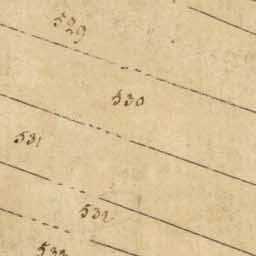 529
530
531
532
533